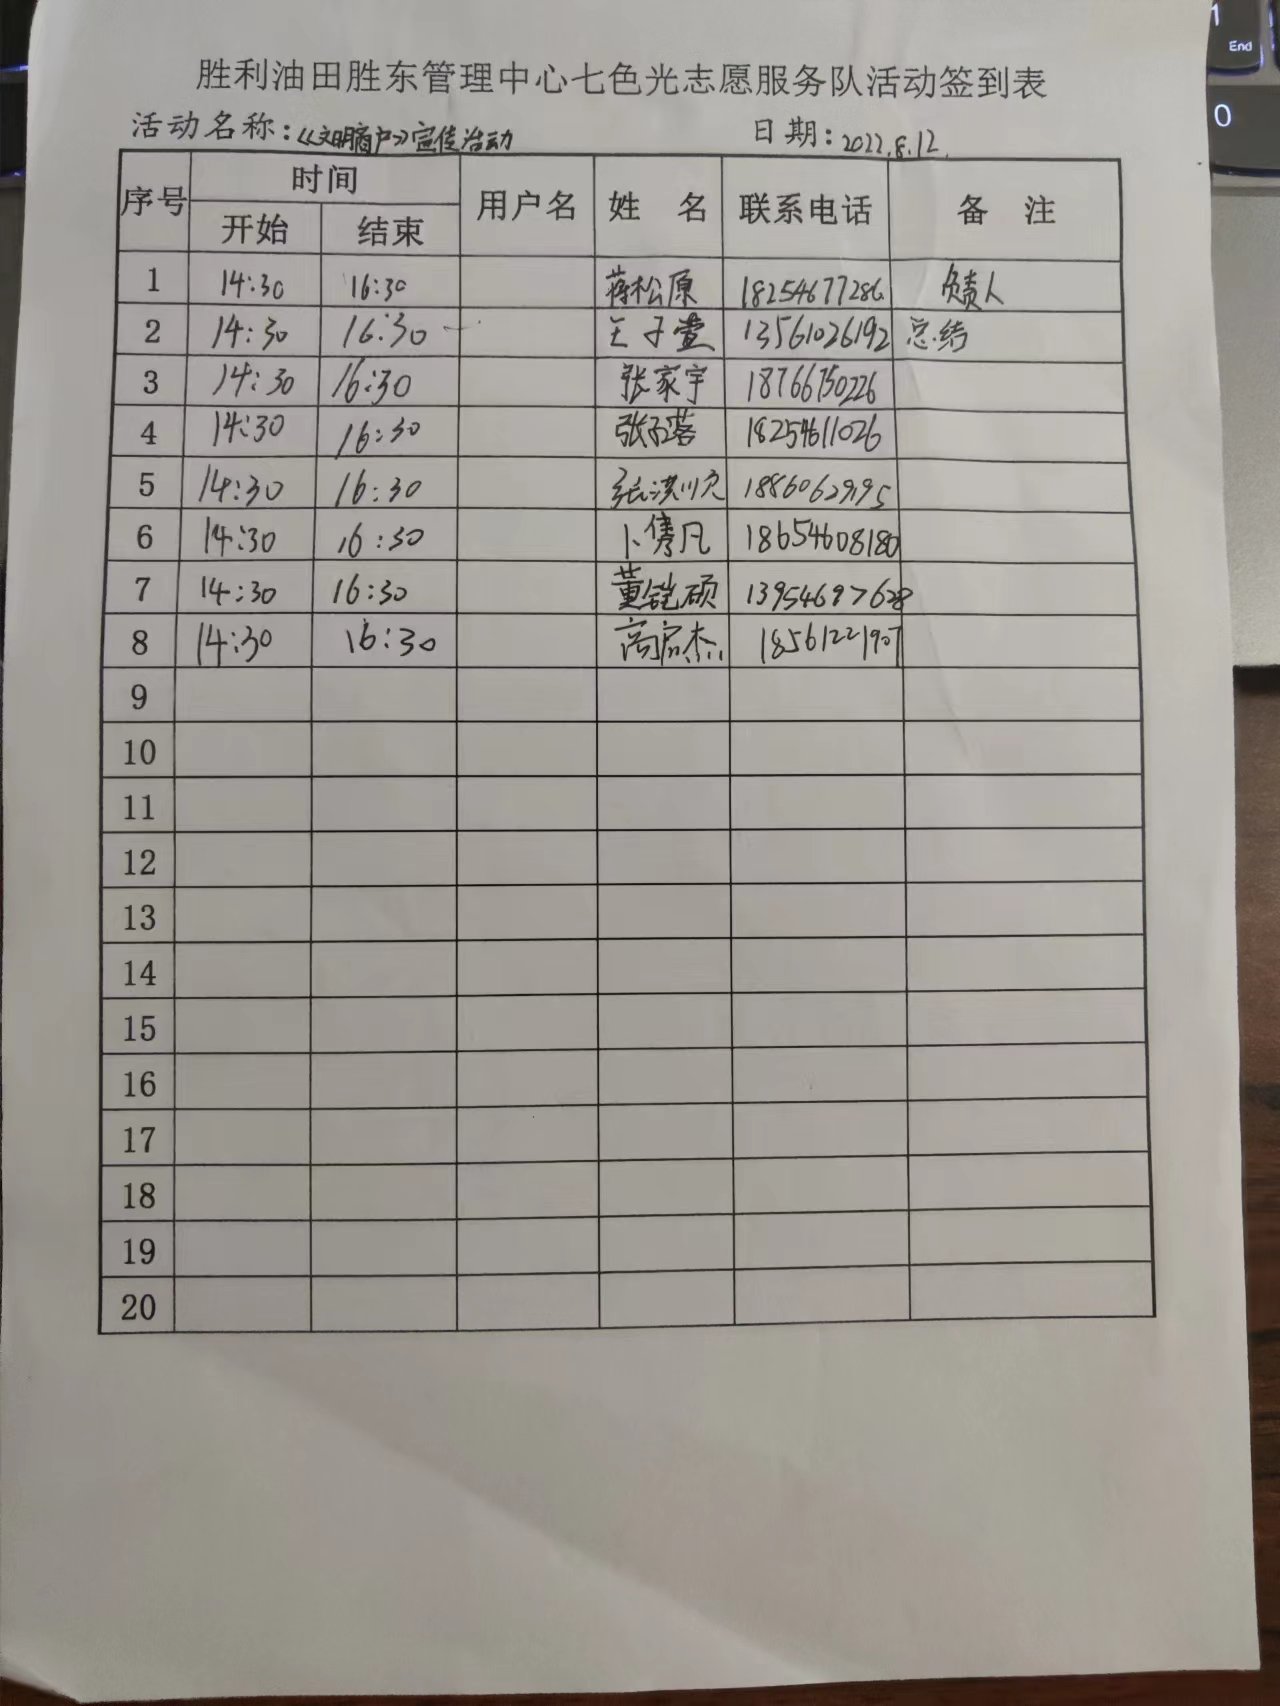 胜利油田胜东管理中心七色光志愿服务队活动签到表
活动名称:《文明商户》宣传活动 日期:2022.8.12.
序号 时间 用户名 姓 名 联系电话 备 注
开始 结束
1 14:30 16:30 蒋松原 18254677286 负责人
2 14:30 16:30 王子萱 13561026192 总结
3 14:30 16:30 张家宇 18766750226
4 14:30 16:30 18254611026
5 14:30 16:30 张洪川
6 14:30 16:30 卜隽凡 18654608180
7 14:30 16:30 董铠硕 13954697628
8 14:30 16:30 18561221907
9
10
11
12
13
14
15
16
17
18
19
20
1
End
0